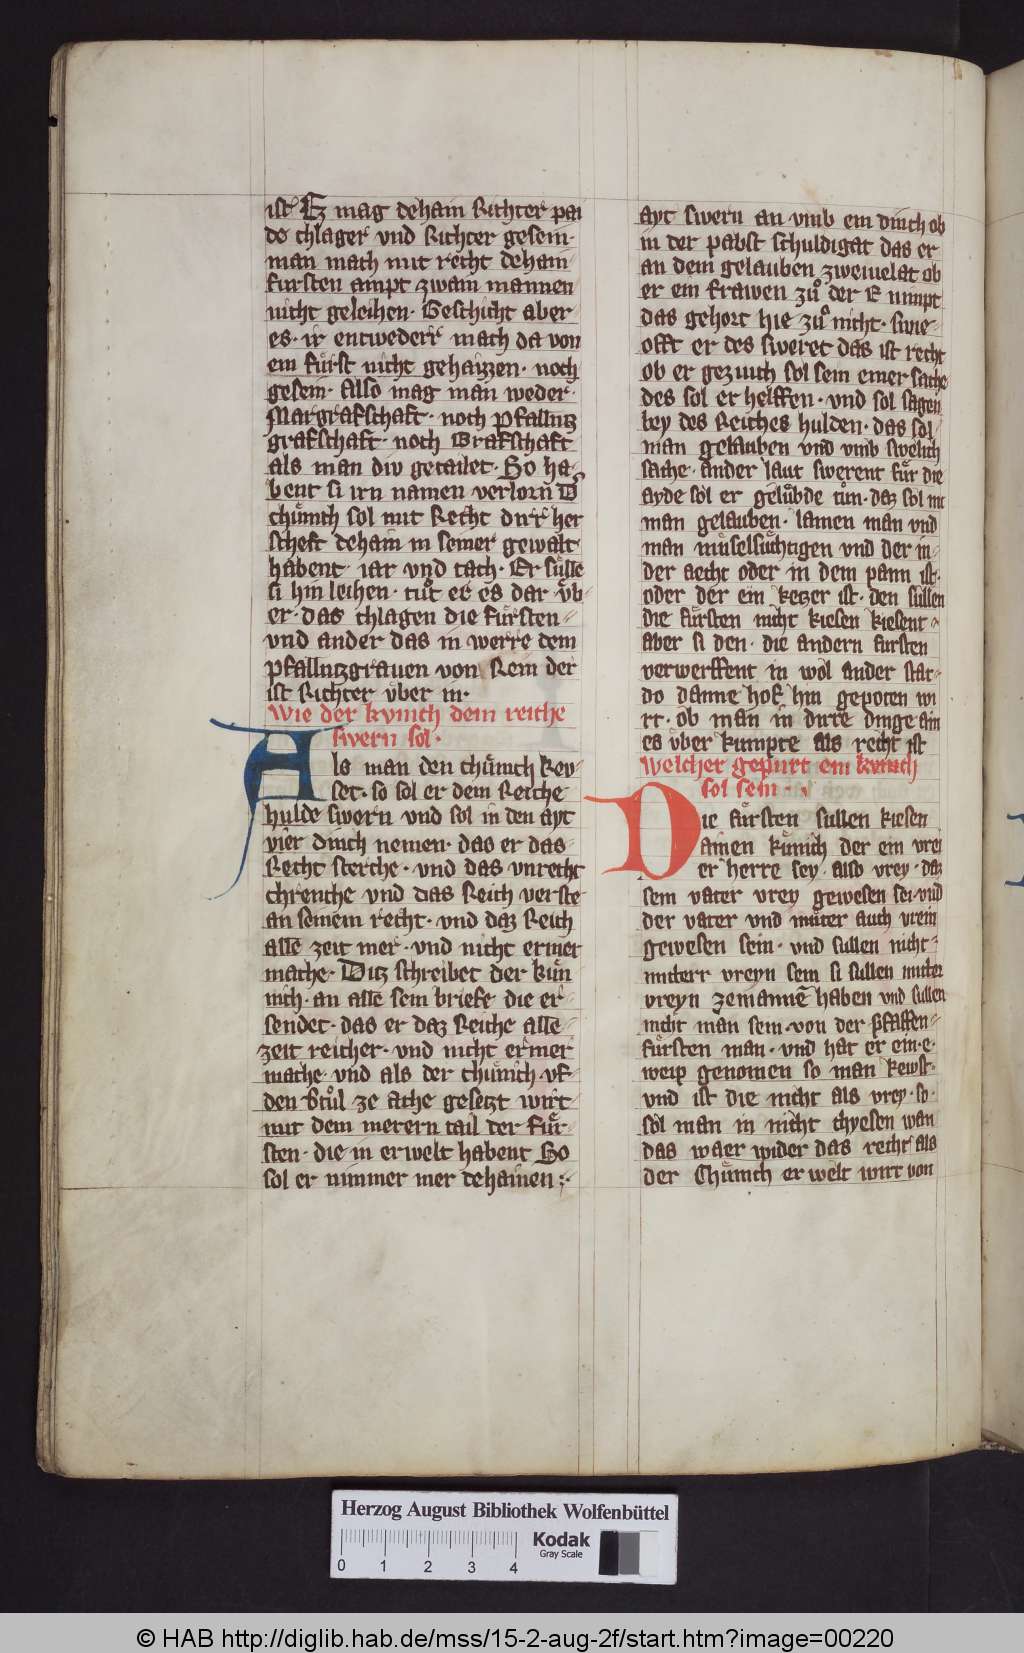 ist Ez mag dehain Richter pai
de chlager vnd Richter gesein·
man mach mit recht dehain
fursten ampt zwain mannen
nicht geleihen· Geschicht aber
es· ir entwederr mach da von
ein fuͤrst nicht gehaizzen· noch
gesein· Also mag man weder·
Margrafschaft· noch pfallntz
grafschaft· noch Grafschaft
als man div getailet· So ha
bent si irn namen verlorn D̾
chuͤnich sol mit Recht dhir her
scheft dehain in seiner gewalt
habent· iar vnd tach· Er suͤlle
si hin leihen· tuͦt er es dar vͤb
er· das chlagen die fuͤrsten
vnd ander das in werre dem
pfallntzgrauen von Rein der
ist Richter vber in·
wie der kvnich dem reiche
swern sol·
Als man den chuͤnich kev
set· so sol er dem Reiche
hulde swern vnd sol in den ayt
vier dinch nemen· das er das
Recht sterche· vnd das vnrecht
chrenche vnd das Reich verste
an seinem recht· vnd daz Reich
alle zeit mer· vnd nicht ermer
mache· Ditz schreibet der kuͤn
nich· an alle sein briefe die er
sendet· das er daz Reiche alle
zeit reicher· vnd nicht ermer
mache· vnd als der chuͤnich vf
den Stuͦl ze Ache gesetzt wirt
mit dem merern tail der fuͤr
sten· die in erwelt habent So
sol er nimmer mer dehainen
ayt swern an vmb ein dinch ob
in der pabst schuldigat das er
an dem gelauben zweiuelat ob
er ein frawen zuͦ der E nimpt
das gehort hie zuͦ nicht· swie
offt er des sweret das ist recht
ob er gezuich sol sein einer sache
des sol er helffen· vnd sol sagen
bey des Reiches hulden· das sol
man gelauben vnd vmb swelich
sache· ander laut swerent fuͤr die
ayde sol er geluͤbde tuͦn· daz sol mt
man gelauben· lamen man vnd
man muͤselsuͤchtigen vnd der in
der aecht oder in dem pann ist·
oder der ein ketzer ist· den sullen
die fuͤrsten nicht kiesen kiesent
aber si den· die andern fursten
verwerffent in wol ander stat
do danne hof hin gepoten wi
rt· ob man in dirre dinge ain
es vber kumpte als recht ist
Welcher gepurt ein kvnich
sol sein·
Die fuͤrsten sullen kiesen
ainen kuͤnich der ein vrei
er herre sey· also vrey· daz
sein vater vrey gewesen sei· vnd
der vater vnd muͤter auch vrein
gewesen sein· vnd sullen nicht
mitterr vreyn sein si sullen mitter
vreyn zemannē haben vnd sullen
nicht man sein· von der pfaffen
fuͤrsten man· vnd hat er ein· e·
weip genomen so man kewst·
vnd ist die nicht als vrey· so·
sol man in nicht chyesen wan
das waer wider das recht als
der Chuͤnich erwelt wirt von
Herzog August Bibliothek Wolfenbüttel
0 1 2 3 4
Kodak
Gray Scale
© HAB http://diglib.hab.de/mss/15-2-aug-2f/start.htm?image=00220